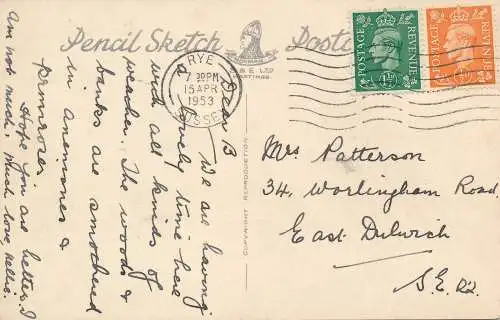 Pencil Sketch Postc
NORMAN
S & E LTD
HASTINGS
RYE
7 30 PM
15 APR
1953
SUSSEX
POSTAGE REVENUE
POSTAGE REVENUE
COPYRIGHT REPRODUCTION
Dear B
We are having
a lovely time here
with all kinds of
weather. The woods &
banks are smothered
in anemones &
primroses
Hope you are better. I
am not much. Much love, Nellie.
Mrs Patterson
34, Worlingham Road
East Dulwich
S.E. 22.